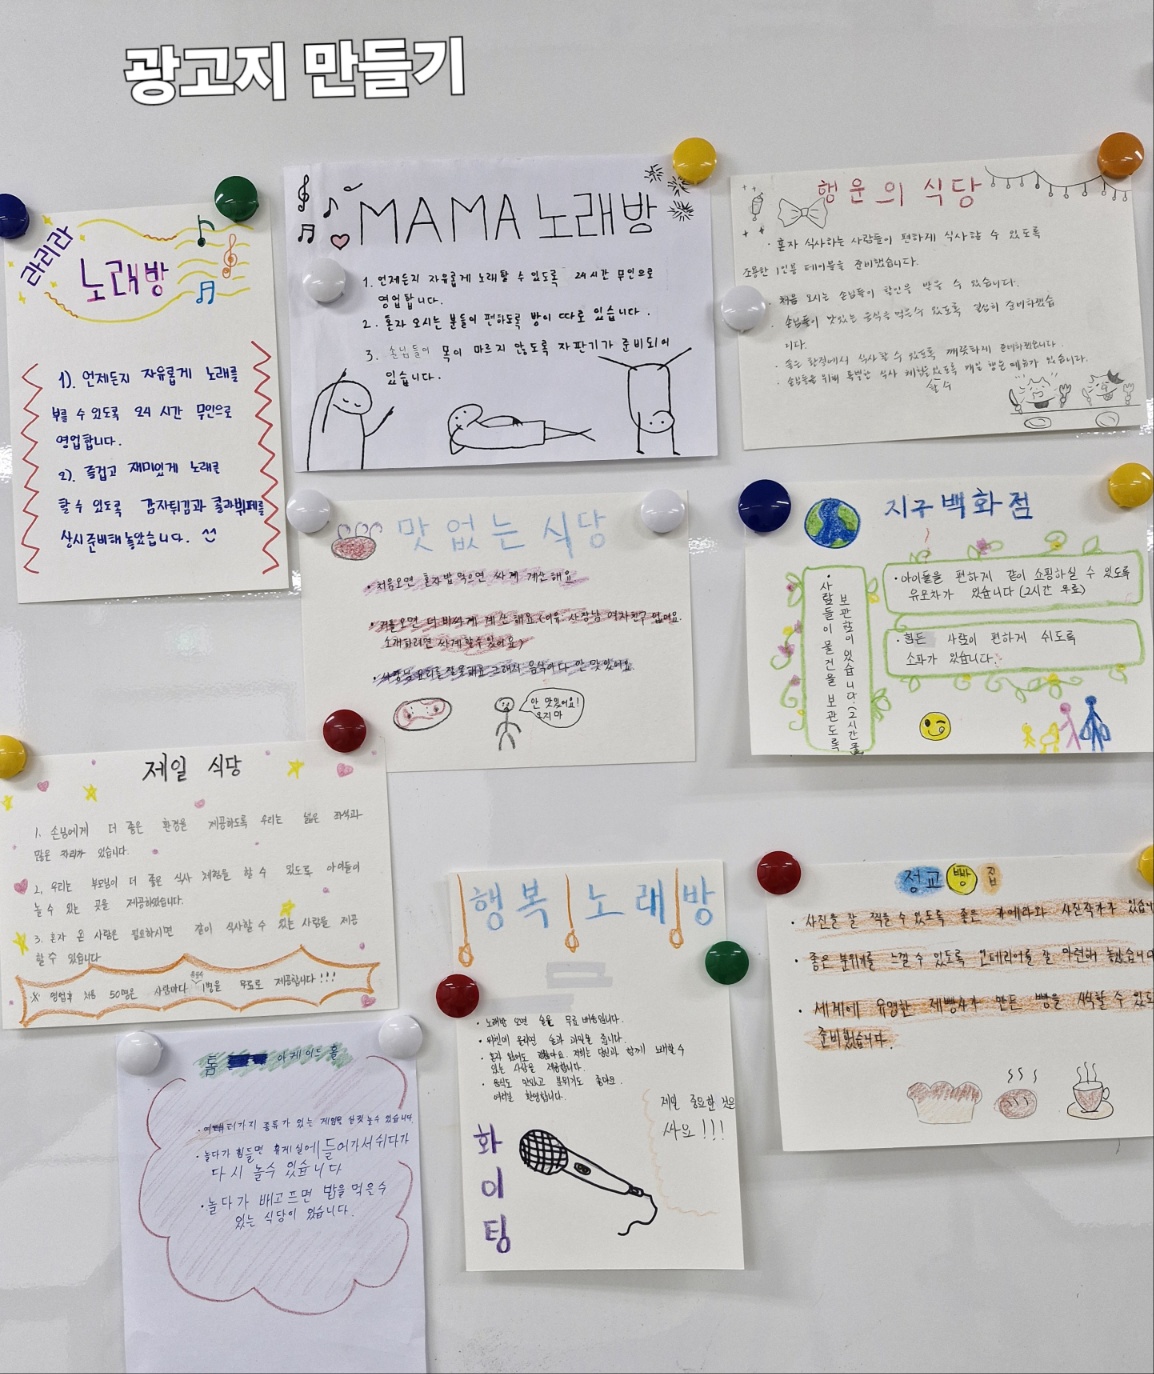 광고지 만들기
라리라
노래방
1). 언제든지 자유롭게 노래를
부를 수 있도록 24 시간 무인으로
영업합니다.
2). 즐겁고 재미있게 노래를
할 수 있도록 감자튀김과 콜라뷔페를
상시 준비해 놓았습니다.
MAMA 노래방
1. 언제든지 자유롭게 노래할 수 있도록 24시간 무인으로
영업합니다.
2. 혼자 오시는 분들이 편하도록 방이 따로 있습니다.
3. 손님들이 목이 마르지 않도록 자판기가 준비되어
있습니다.
행운의 식당
· 혼자 식사하는 사람들이 편하게 식사할 수 있도록
조용한 1인용 테이블을 준비했습니다.
· 처음 오시는 손님들이 할인을 받을 수 있습니다.
· 손님들이 맛있는 음식을 먹을 수 있도록 열심히 준비하였습
이다.
· 좋은 환경에서 식사할 수 있도록 깨끗하게
· 손님들을 위해 특별한 식사 체험할 있도록 매일 행운 메뉴가 있습니다.
할 수
맛없는 식당
· 처음오면 혼자밥먹으면 싸게 계산해요
· 커플오면 더 비싸게 계산해요.(이유: 사장님 여자친구 없어요.
소개하려면 싸게 할 수 있어요)
· 사장님 요리를 잘못해요 그래서 음식마다 안 맛있어요
안 맛있어요!
오지마
지구백화점
· 사람들이 물건을 보관도록
보관함이 있습니다.(2시간
· 아이들을 편하게 같이 쇼핑하실 수 있도록
유모차가 있습니다 (2시간 무료)
· 힘든 사람이 편하게 쉬도록
소파가 있습니다.
제일 식당
1. 손님에게 더 좋은 환경을 제공하도록 우리는 넓은 좌석과
많은 자리가 있습니다.
2. 우리는 부모님이 더 좋은 식사 체험을 할 수 있도록 아이들이
놀 수 있는 곳을 제공하였습니다.
3. 혼자 온 사람은 필요하시면 같이 식사할 수 있는 사람을 제공
할 수 있습니다
※ 영업후 처음 50명은 사람마다 1병을 무료로 제공합니다!!!
행복 노래방
· 노래방 오면 술을 무료
· 위반이 올리면 술과 과일을 줍니다.
· 혼자 있어도 괜찮아요. 저희는 당신과 함께 노래할 수
있는 사람을 제공합니다.
· 음식도 맛있고 분위기도 좋아요.
여러분 환영합니다.
제일 중요한 것은
싸요!!!
화이팅
정교 빵 집
· 사진을 잘 찍을 수 있도록 좋은 카메라와 사진작가가 있습니
· 좋은 분위기를 느낄 수 있도록 인테리어를 잘 마련해 놓았습니다
· 세계에 유명한 제빵사가 만든 빵을 식사할 수 있도
준비했습니다.
톰 아케이드 홀
· 여러가지 종류가 있는 게임을 실컷 놀수 있습니다.
· 놀다가 힘들면 휴게실에 들어가서 쉬다가
다시 놀수 있습니다
· 놀다가 배고프면 밥을 먹은수
있는 식당이 있습니다.